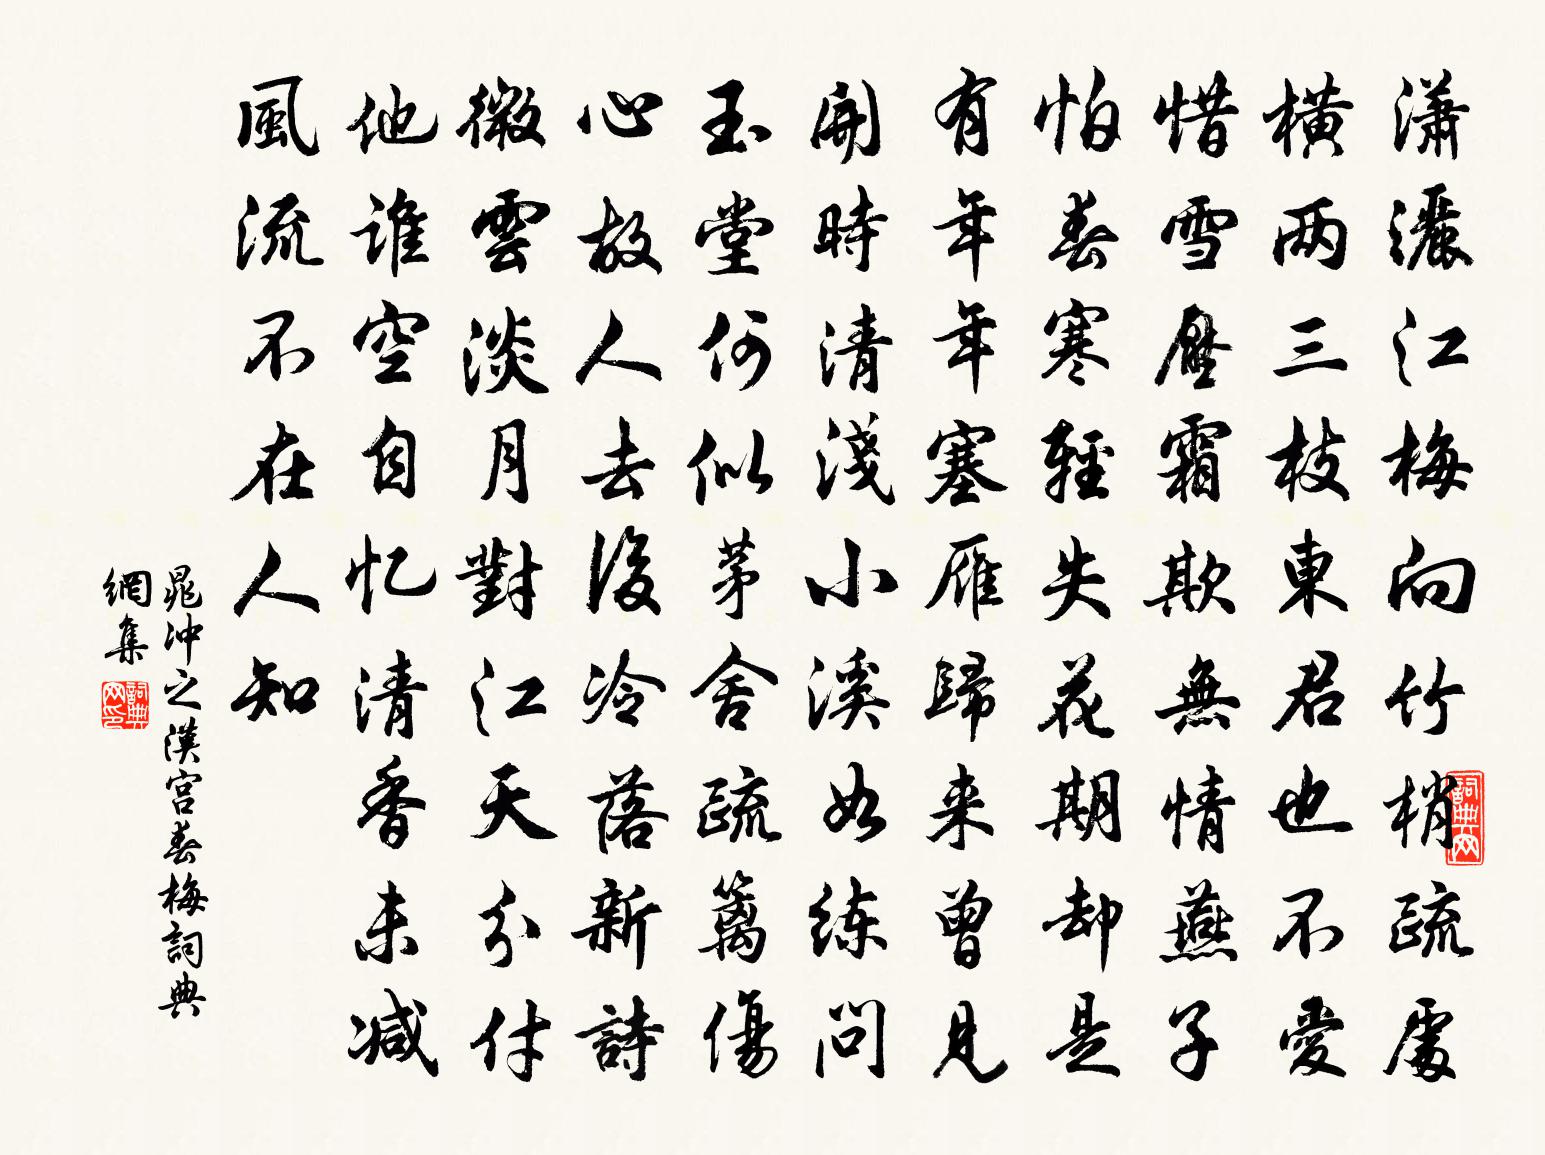 瀟灑江梅向竹梢疏處
橫兩三枝東君也不愛
惜雪壓霜欺無情燕子
怕春寒輕失花期却是
有年年塞雁歸来曾見
開時清淺小溪如练問
玉堂何似茅舍疏籬傷
心故人去後冷落新詩
微雲淡月對江天分付
他谁空自忆清香未减
風流不在人知
晁冲之漢宫春梅詞典
網集
詞典網
詞典网印